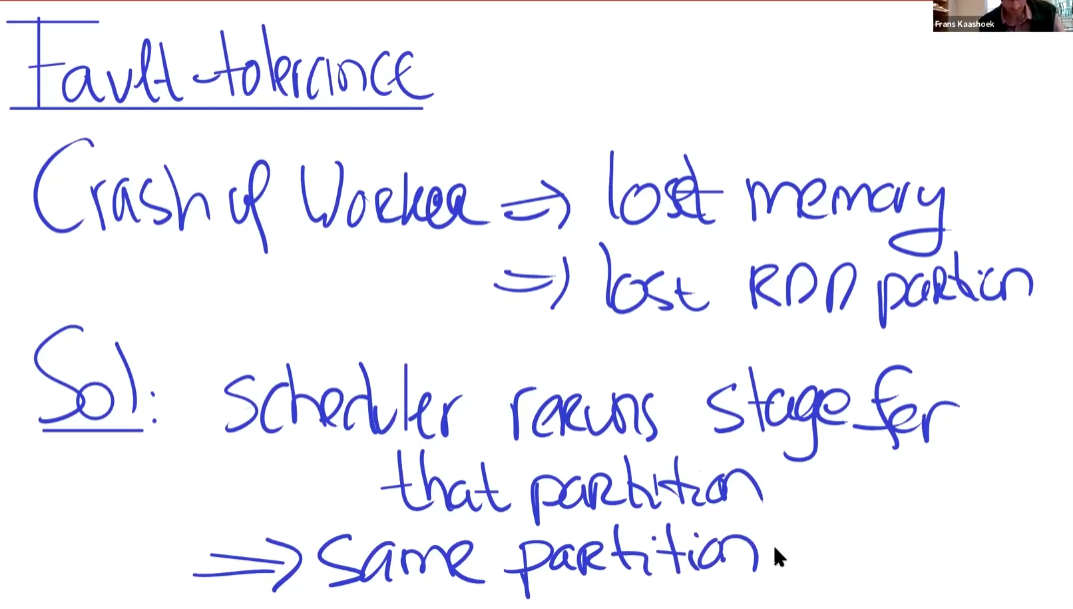 Frans Kaashoek
Fault-tolerance
Crash of Worker => lost memory
=> lost RDD partion
Sol: scheduler reruns stage for
that partition
=> same partition